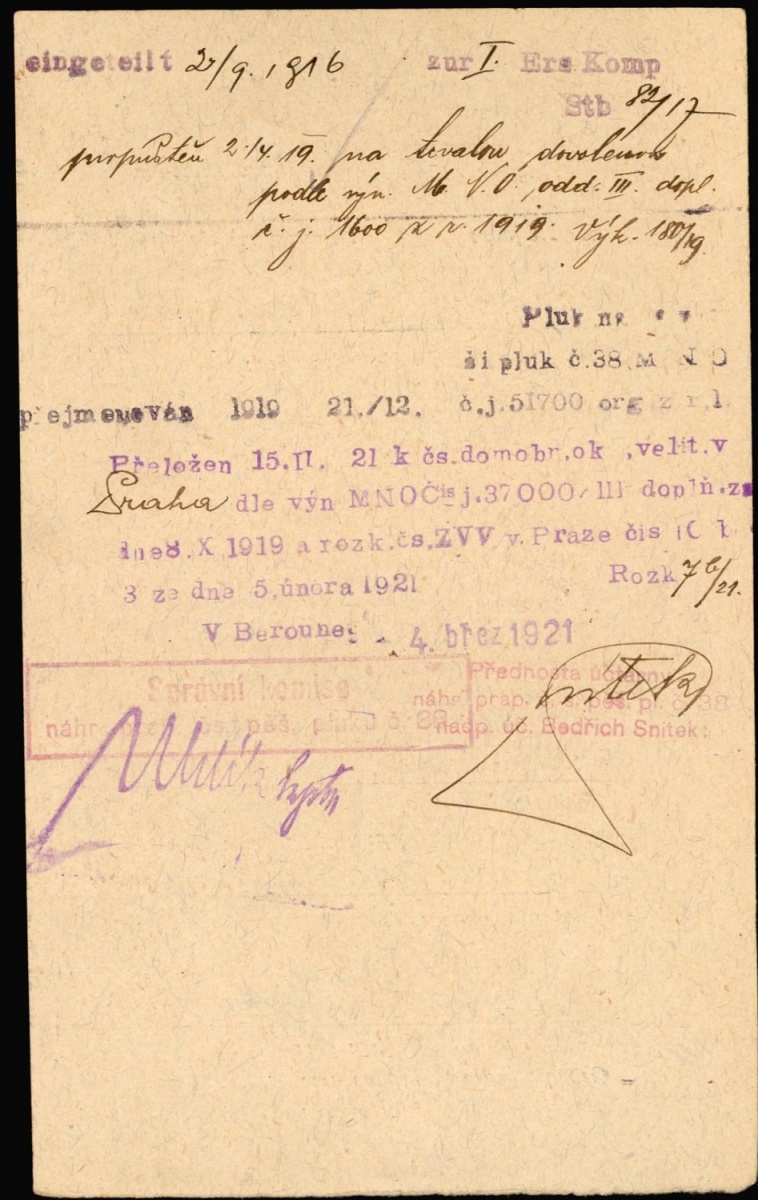 eingeteilt 2/9. 1916 zur I. Ers Komp
Stb 82/17
propuštěn 2./4. 19. na trvalou dovolenou
podle výn. M. N. O. odd. III. dopl.
č. j. 1600 z r. 1919. Výk. 180/19.
Pluk na
ší pluk č.38 M N O
přejmenován 1919 21./12. č.j.51700 org z r.1
Přeložen 15.II. 21 k čs.domobr.ok .velit.v
Praha dle výn MNOČis j.37000/III doplň.ze
dne8.X 1919 a rozk.čs.ZVV v Praze čis 10
3 ze dne 5.února 1921 Rozk 76/21.
V Berouně 4. břez 1921
Správní komise
náhr. čs. pěš. pluku č. 38
Přednosta účtárny
náhr prap. čs. pěš. pl. č. 38
nadp. úč. Bedřich Snítek:
Snítek